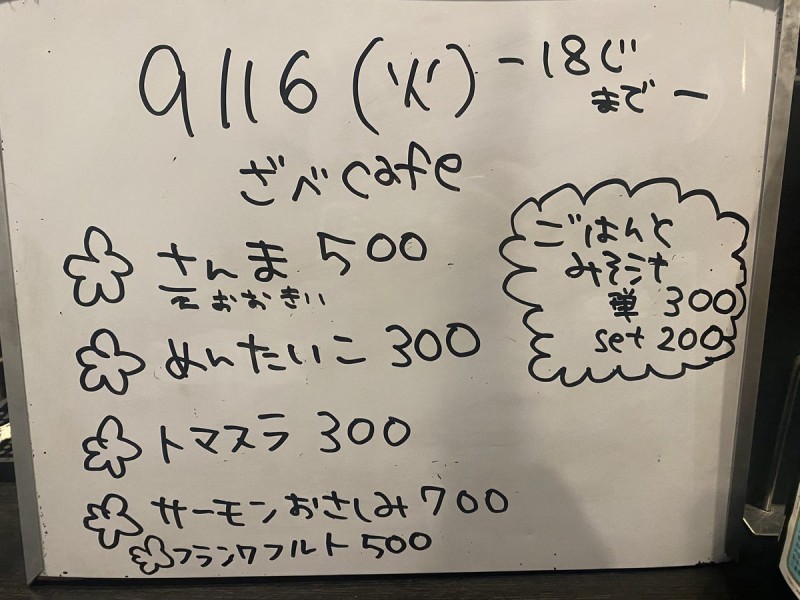 9/16 (火) -18じ
まで-
ざべcafe
さんま 500
おおきい
めんたいこ 300
トマスラ 300
サーモンおさしみ 700
フランクフルト 500
ごはんと
みそ汁
単 300
set 200